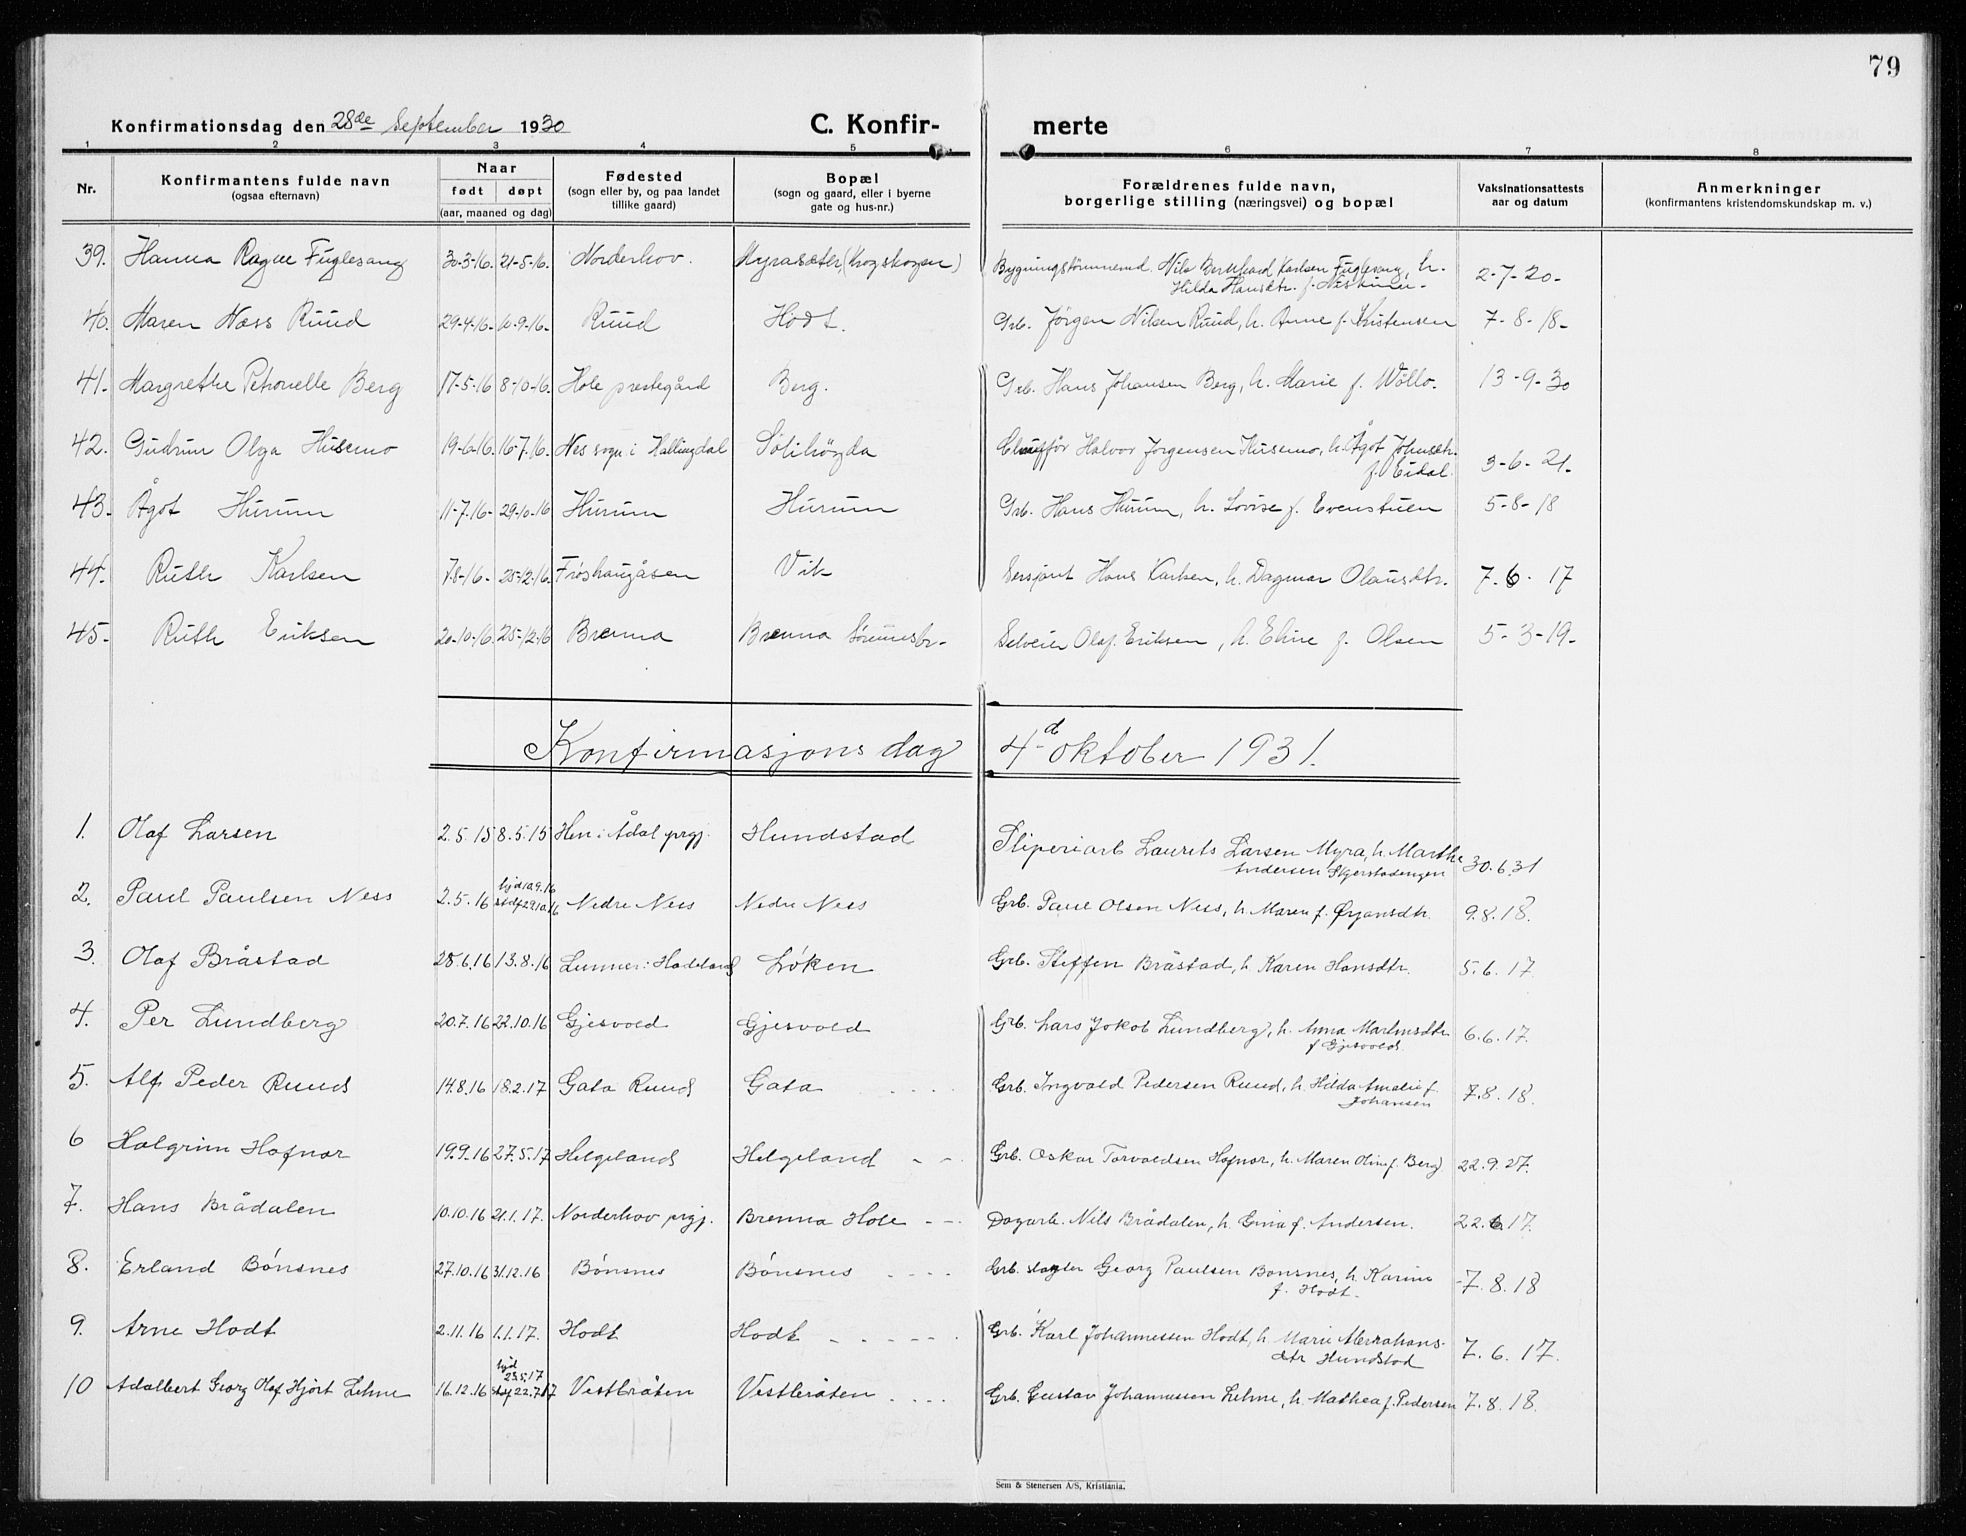 79
Konfirmationsdag den 28de September 1930 C. Konfir- merte
1 2 3 4 5 6 7 8
Nr. Konfirmantens fulde navn (ogsaa efternavn) Naar født døpt (aar, maaned og dag) Fødested (sogn eller by, og paa landet tillike gaard) Bopæl (sogn og gaard, eller i byerne gate og hus-nr.) Forældrenes fulde navn, borgerlige stilling (næringsvei) og bopæl Vaksinationsattests aar og datum Anmerkninger (konfirmantens kristendomskundskap m. v.)
39. Hanna Ragne Fuglesang 30-3-16. 21-5-16. Norderhov. Myrasæter (Krogskogen) Nils Bernhard Karlsen Fuglesang, h. 2-7-20-
Hilda Hansdtr. f.
40. Maren Næss Ruud 29-4-16- 10-9-16- Ruud Hodt. Grb. Jörgen Nilsen Ruud, h. Anne f. Kristensen 7-8-18-
41. Margrethe Petronelle Berg 17-5-16 8-10-16. Hole prestegård Berg. Grb. Hans Johansen Berg, h. Marie f. Wöllo. 13-9-30
42. Gudrun Olga Husemo 19-6-16. 16-7-16. Nes sogn i Hallingdal Sølihögda Chaufför Halvor Jörgensen Husemo, h. Ågot Johnsdtr. 3-6-21-
f. Eidal.
43. Ågot Hurum 11-7-16- 29-10-16 Hurum Hurum Grb. Hans Hurum, h. Lovise f. Evenstuen 5-8-18
44. Ruth Karlsen 7-8-16- 25-12-16. Frøshaugåsen Vik Sersjant Hans Karlsen, h. Dagmar Olausdtr. 7-6-17
45. Ruth Eriksen 20-10-16. 25-12-16 Brenna Brenna Sørumsbr- Selveier Olaf Eriksen, h. Eline f. Olsen 5-3-19-
Konfirmasjonsdag 4-d oktober 1931.
1. Olaf Larsen 2.5.15 8.5.15 Hen i Ådal prgj. Hundstad Sliperiarb Laurits Larsen Myra, h. Marthe 30.6.31
Andersen Skjerstadengen
2. Paul Paulsen Ness 2.5.16 hjd 10.9.16 stadf 29.10.16 Nedre Ness Nedre Ness Grb. Paul Olsen Ness, h. Maren f. Ørjansdtr. 9.8.18.
3. Olaf Bråstad 28.6.16 13.8.16 Lunner i Hadeland Løken Grb. Steffen Bråstad, h Karen Hansdtr. 5.6.17
4. Per Lundberg 20.7.16 22.10.16 Gjesvold Gjesvold Grb. Lars Jokob Lundberg, h. Anna Martinsdtr 6.6.17.
f Gjesvold.
5. Alf Peder Ruud 14.8.16 18.2.17 Gata Ruud Gata Grb. Ingvald Pedersen Ruud, h. Hilda Amalie f. 7.8.18.
Johansen
6 Halgrim Hafnor 19.9.16 27.5.17 Helgeland Helgeland Grb. Oskar Torvaldsen Hafnor, h. Maren Oline f. Berg 22.9.27.
7. Hans Brådalen 10.10.16 21.1.17. Norderhov prgj. Brenna Hole Dagarb. Nils Brådalen, h. Gina f. Andersen. 22.6.17.
8. Erland Bønsnes 27.10.16 31.12.16 Bønsnes Bønsnes Grb. slagter Georg Paulsen Bønsnes, h. Karine 7.8.18
f. Hodt.
9. Arne Hodt 2.11.16 1.1.17. Hodt Hodt Grb. Karl Johannessen Hodt, h. Marie Abrahams- 7.6.17.
dtr Hundstad
10 Adalbert Georg Olaf Hjört Lehne 16.12.16 hjd 23.5.17 stdf 22.7.17 Vestbråten Vestbråten Grb. Gustav Johannessen Lehne, h. Mathea f. Pedersen 7.8.18.
Sem & Stenersen A/S, Kristiania.